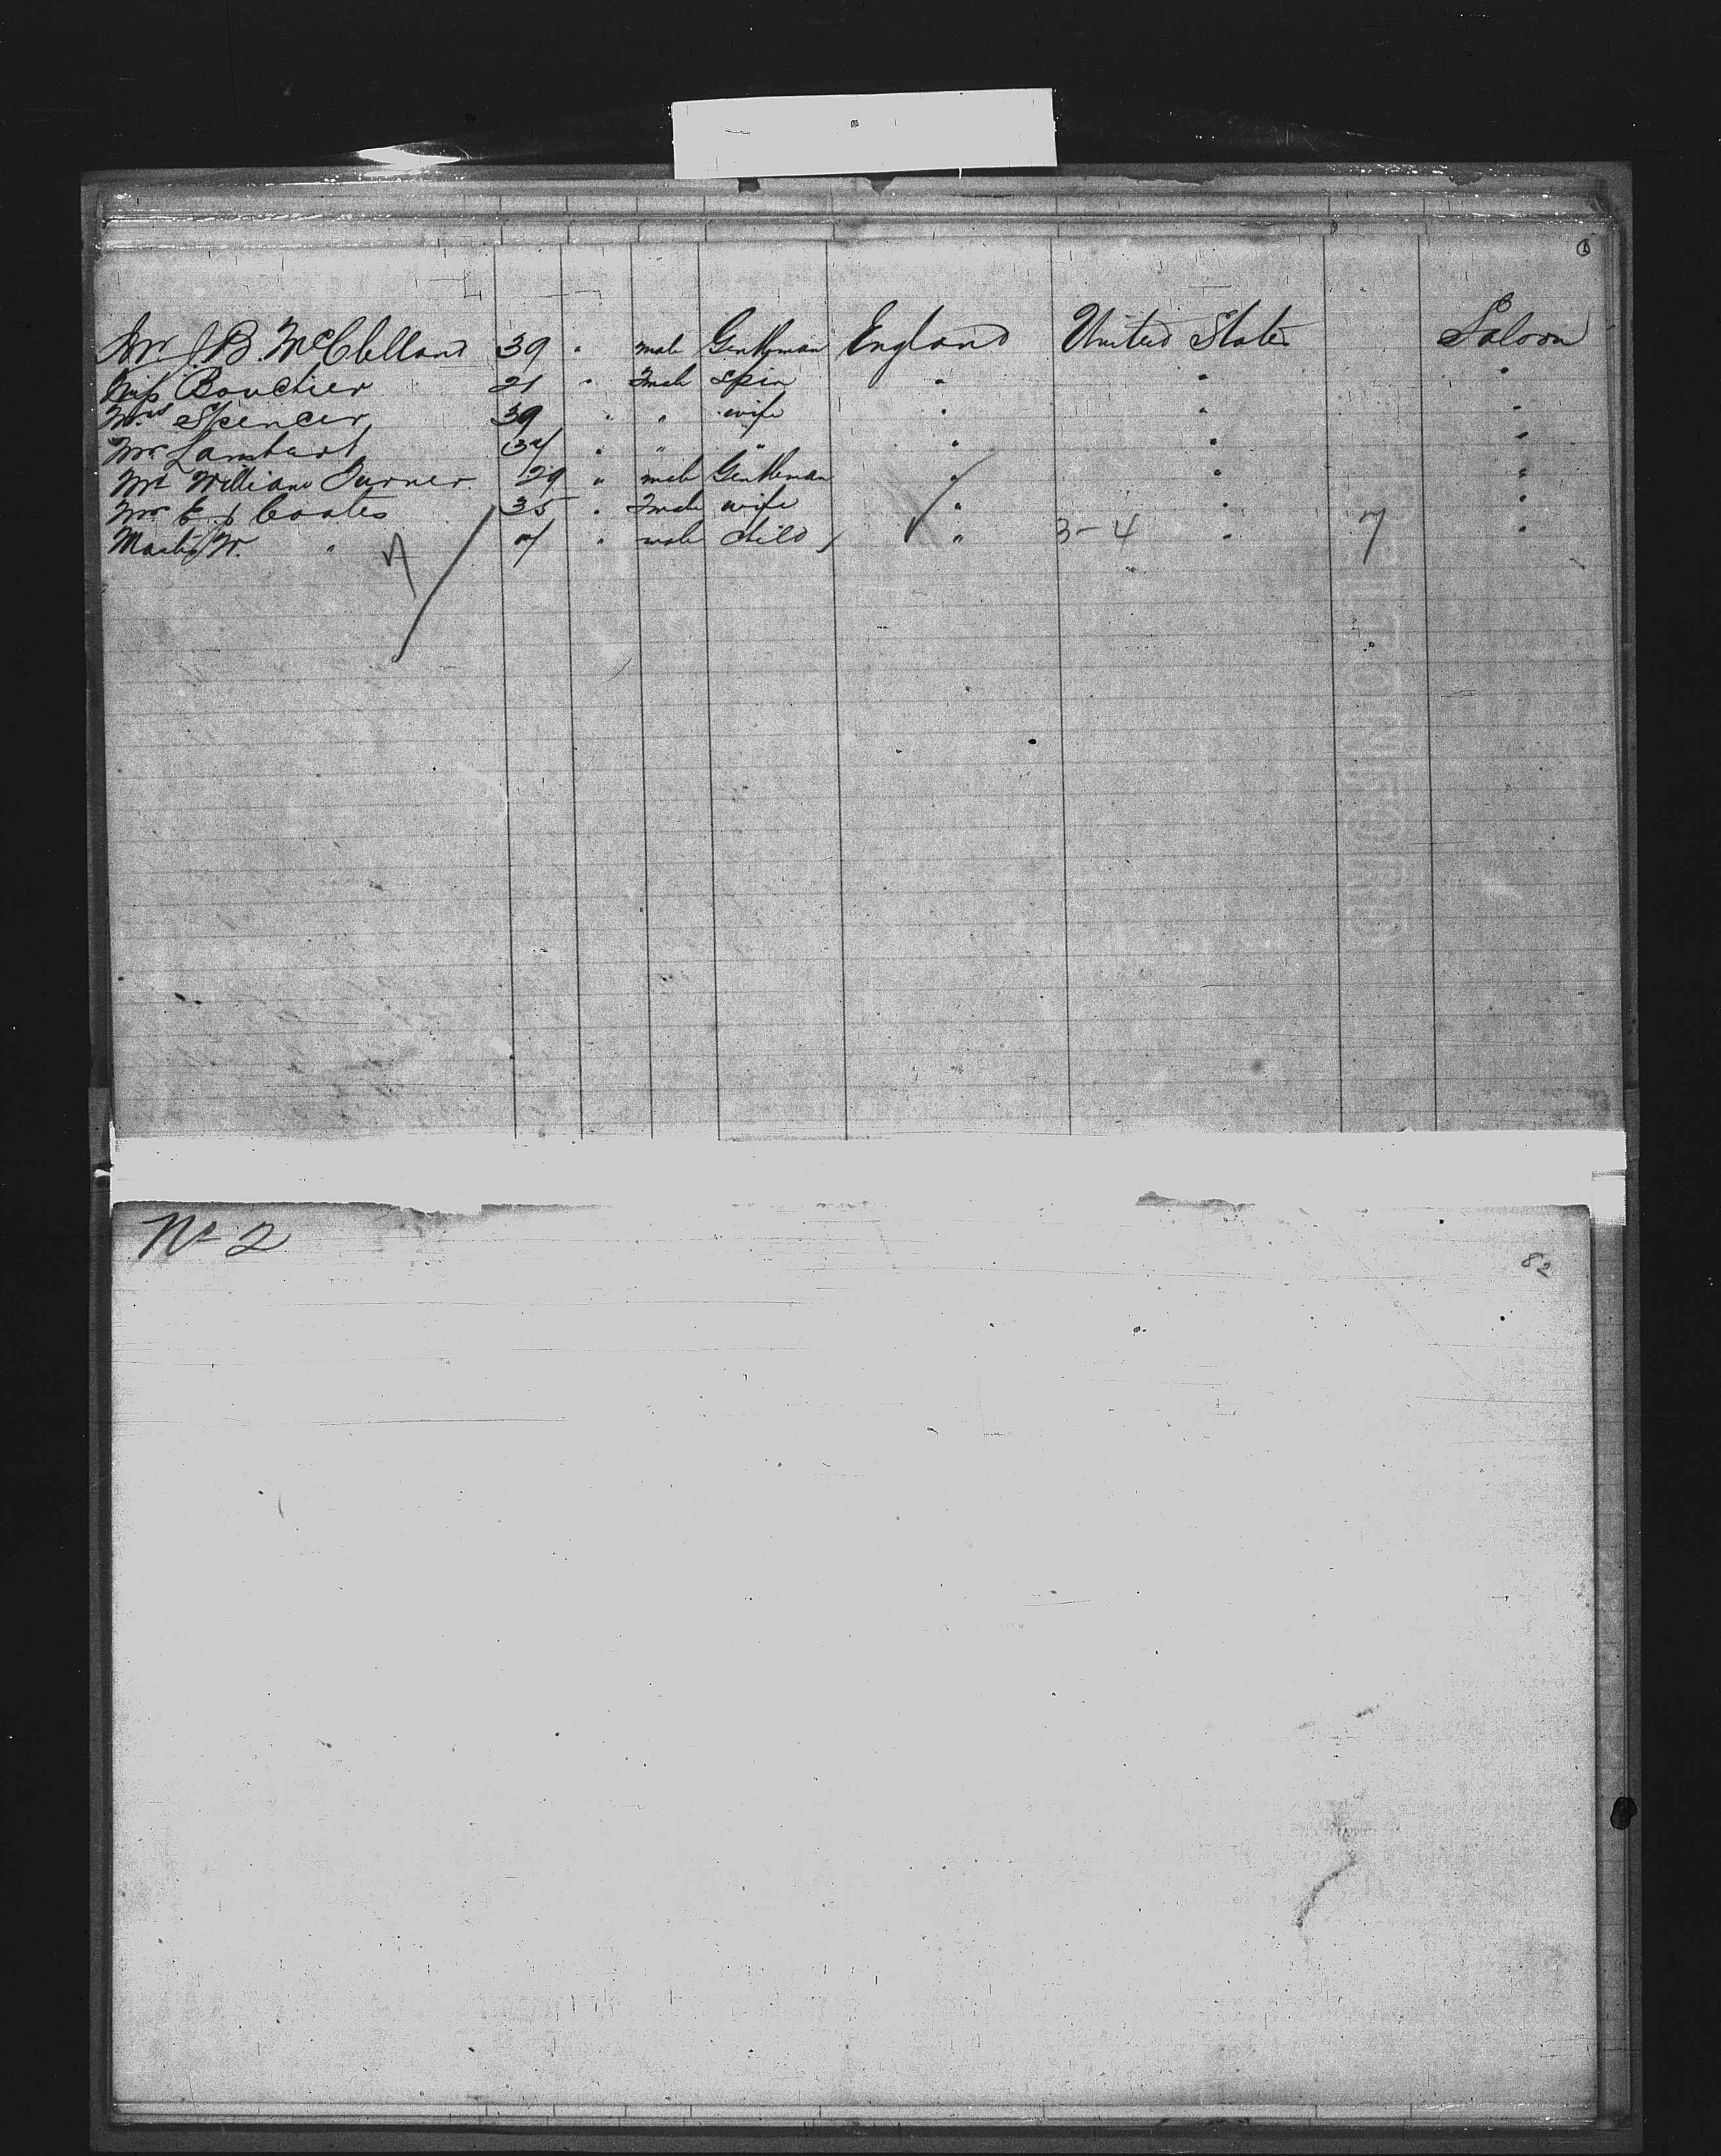 Mr J B. McClelland 39 " male Gentleman England United States Saloon
Miss Bouchier 21 " Fmale Spin " " "
Mrs Spencer 39 " " wife " " "
Mrs Lambert 34 " " " " " "
Mr William Turner 29 " male Gentleman " " "
Mrs E J Coates 35 " Fmale wife " " "
Master W. " 4 " male child " 3-4 " 7 "
No 2
82